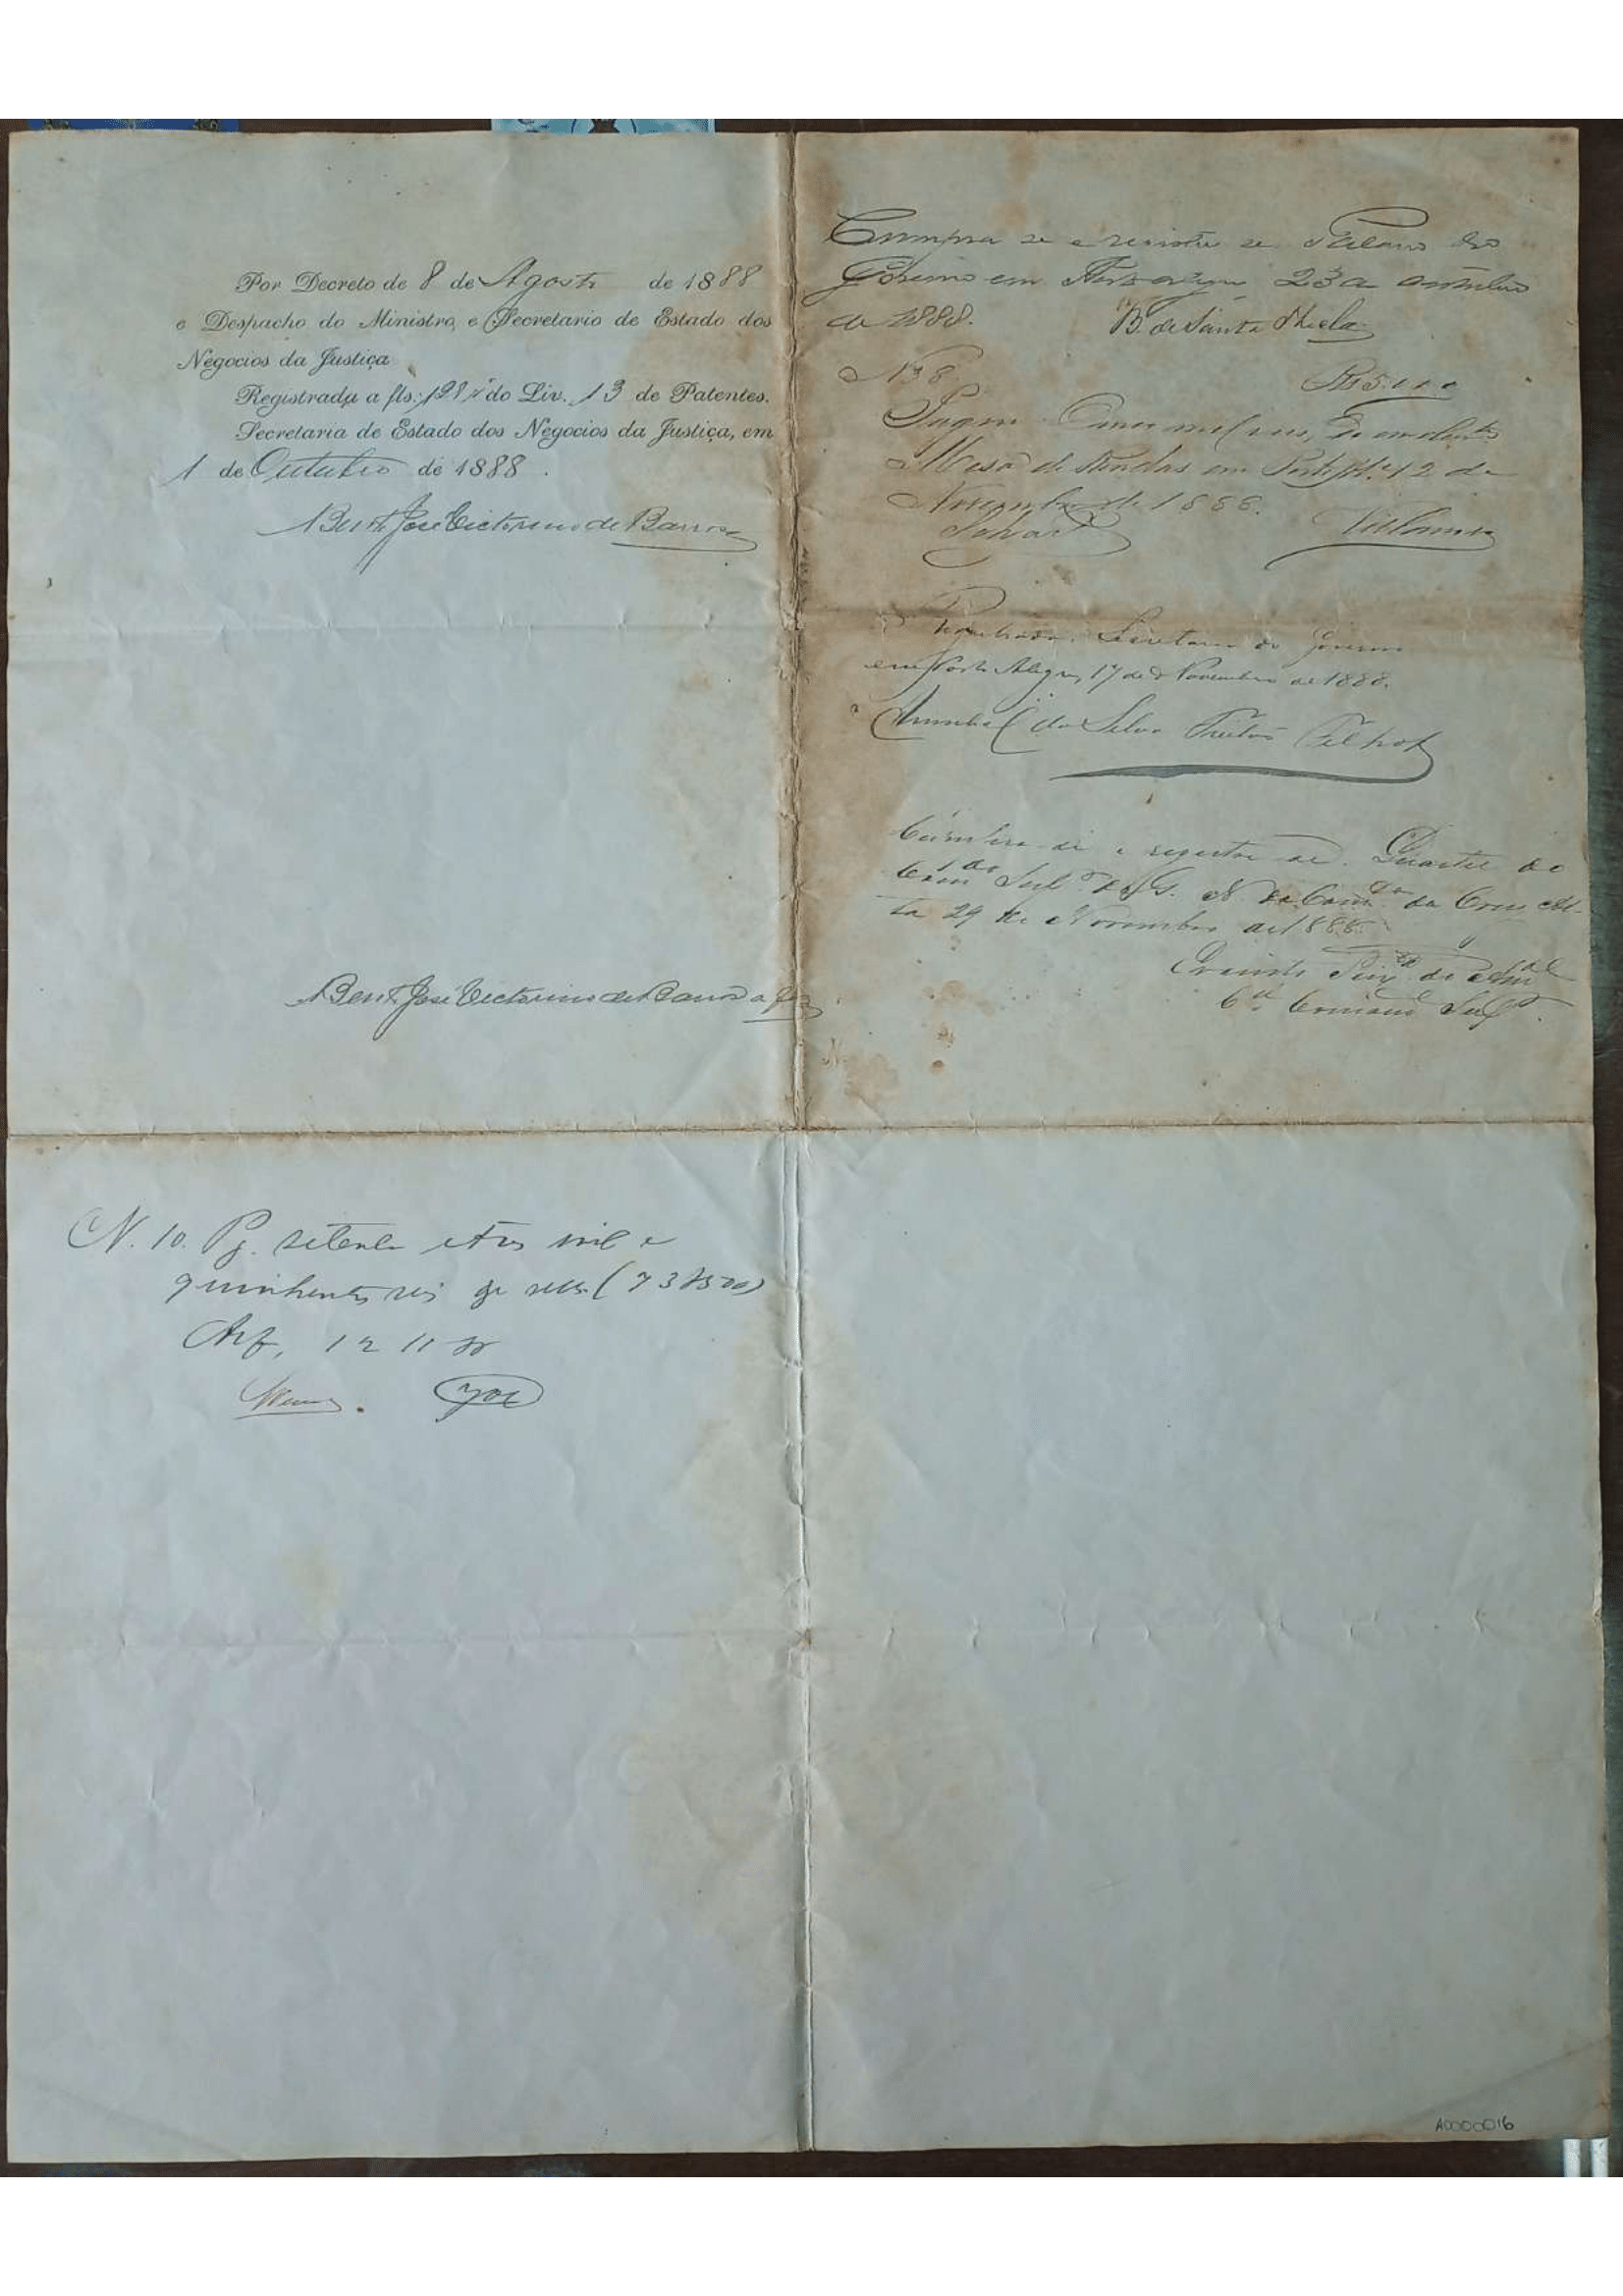 Por Decreto de 8 de Agosto de 1888
e Despacho do Ministro e Secretario de Estado dos
Negocios da Justiça
Registrada a fls. 128 v do Liv. 13 de Patentes.
Secretaria de Estado dos Negocios da Justiça, em
1 de Outubro de 1888.
Bento José Victorino de Barros
Bento José Victorino de Barros a fez
N. 10. Pg. setenta e tres mil e
quinhentos reis de sello (73$500)
12 11 88
Cumpra se e registre se. Palacio do
Governo em Porto Alegre 23 de Outubro
de 1888.
B. de Santa Thecla
N 38 Rs 5.000
Pagou Cinco mil reis, de emolentos
Mesa de Rendas em Porto Ale. 12 de
Novembro de 1888.
Registrada. Secretaria do Governo
em Porto Alegre, 17 de Novembro de 1888.
Annibal da Silva Freitas Filho
Cumpra se e registre se. Quartel do
Comdo Supor da G. N. da Comca da Cruz Al-
ta 29 de Novembro de 1888.
Evaristo Teixra do Amal
Cel Comande Supor.
A0000016